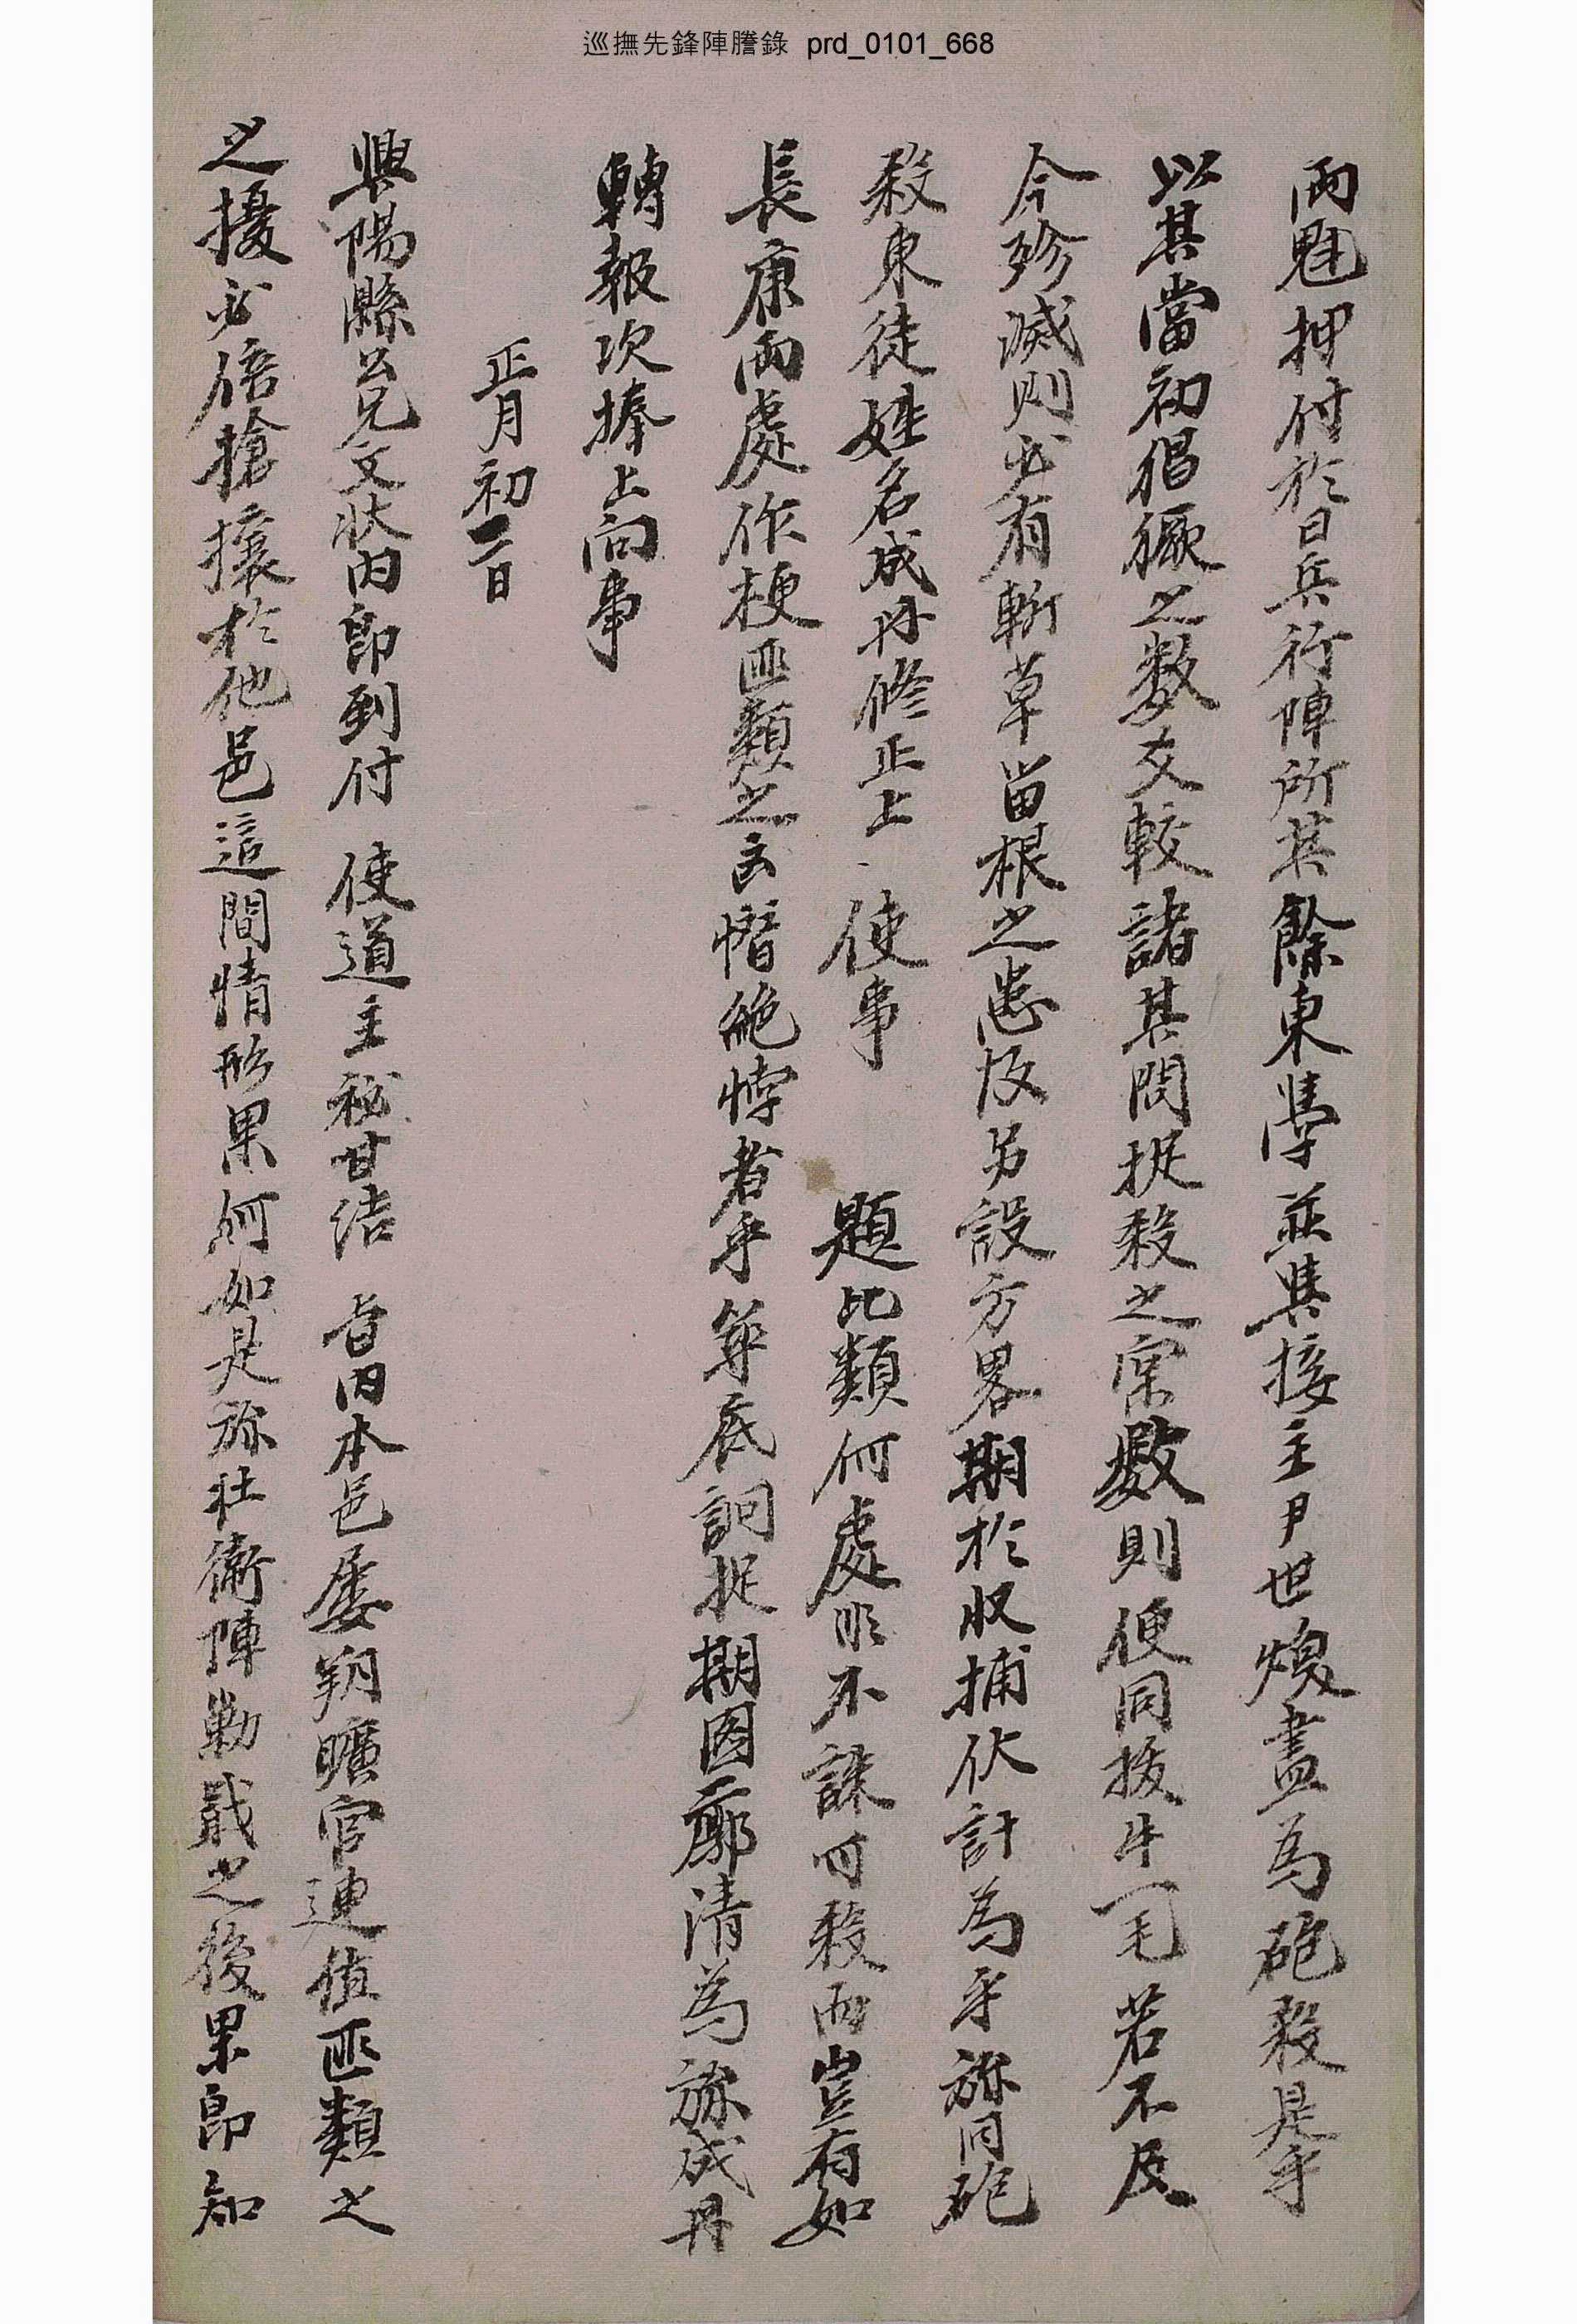 巡撫先鋒陣謄錄 prd_0101_668
兩魁押付於日兵行陣所其餘東學並其接主尹世煥盡爲砲殺是乎
以其當初猖獗之數文較諸其間捉殺之案數則便同拔牛一毛若不及
今殄滅則必有斬草留根之患故另設方畧期於收捕伏計爲乎旀同砲
殺東徒姓名成冊修正上使事 題此類何處不誅何殺而豈有如
長康兩處作梗匪類之凶憯絶悖者乎笄底詗捉期圖廓清爲旀成冊
轉報次捧上向事
正月初二日
興陽縣公兄文狀內卽到付 使道主秘甘結 旨內本邑屡朔曠官連値匪類之
之擾必倍搶攘於他邑這間情形果何如是旀壯衛陣勦戢之後果卽知